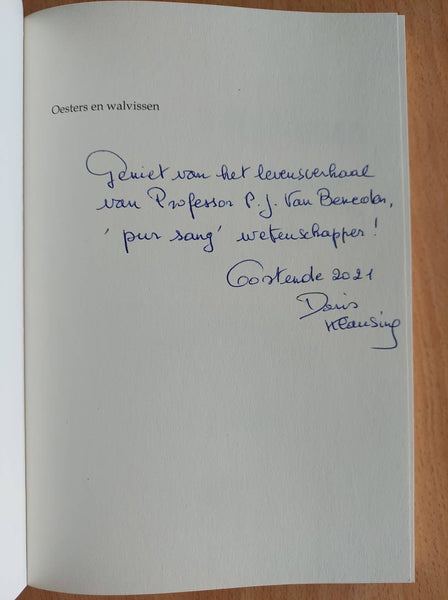 Oesters en walvissen
Geniet van het levensverhaal
van Professor P.J. Van Beneden,
'pur sang' wetenschapper!
Oostende 2021
Doris
Klausing